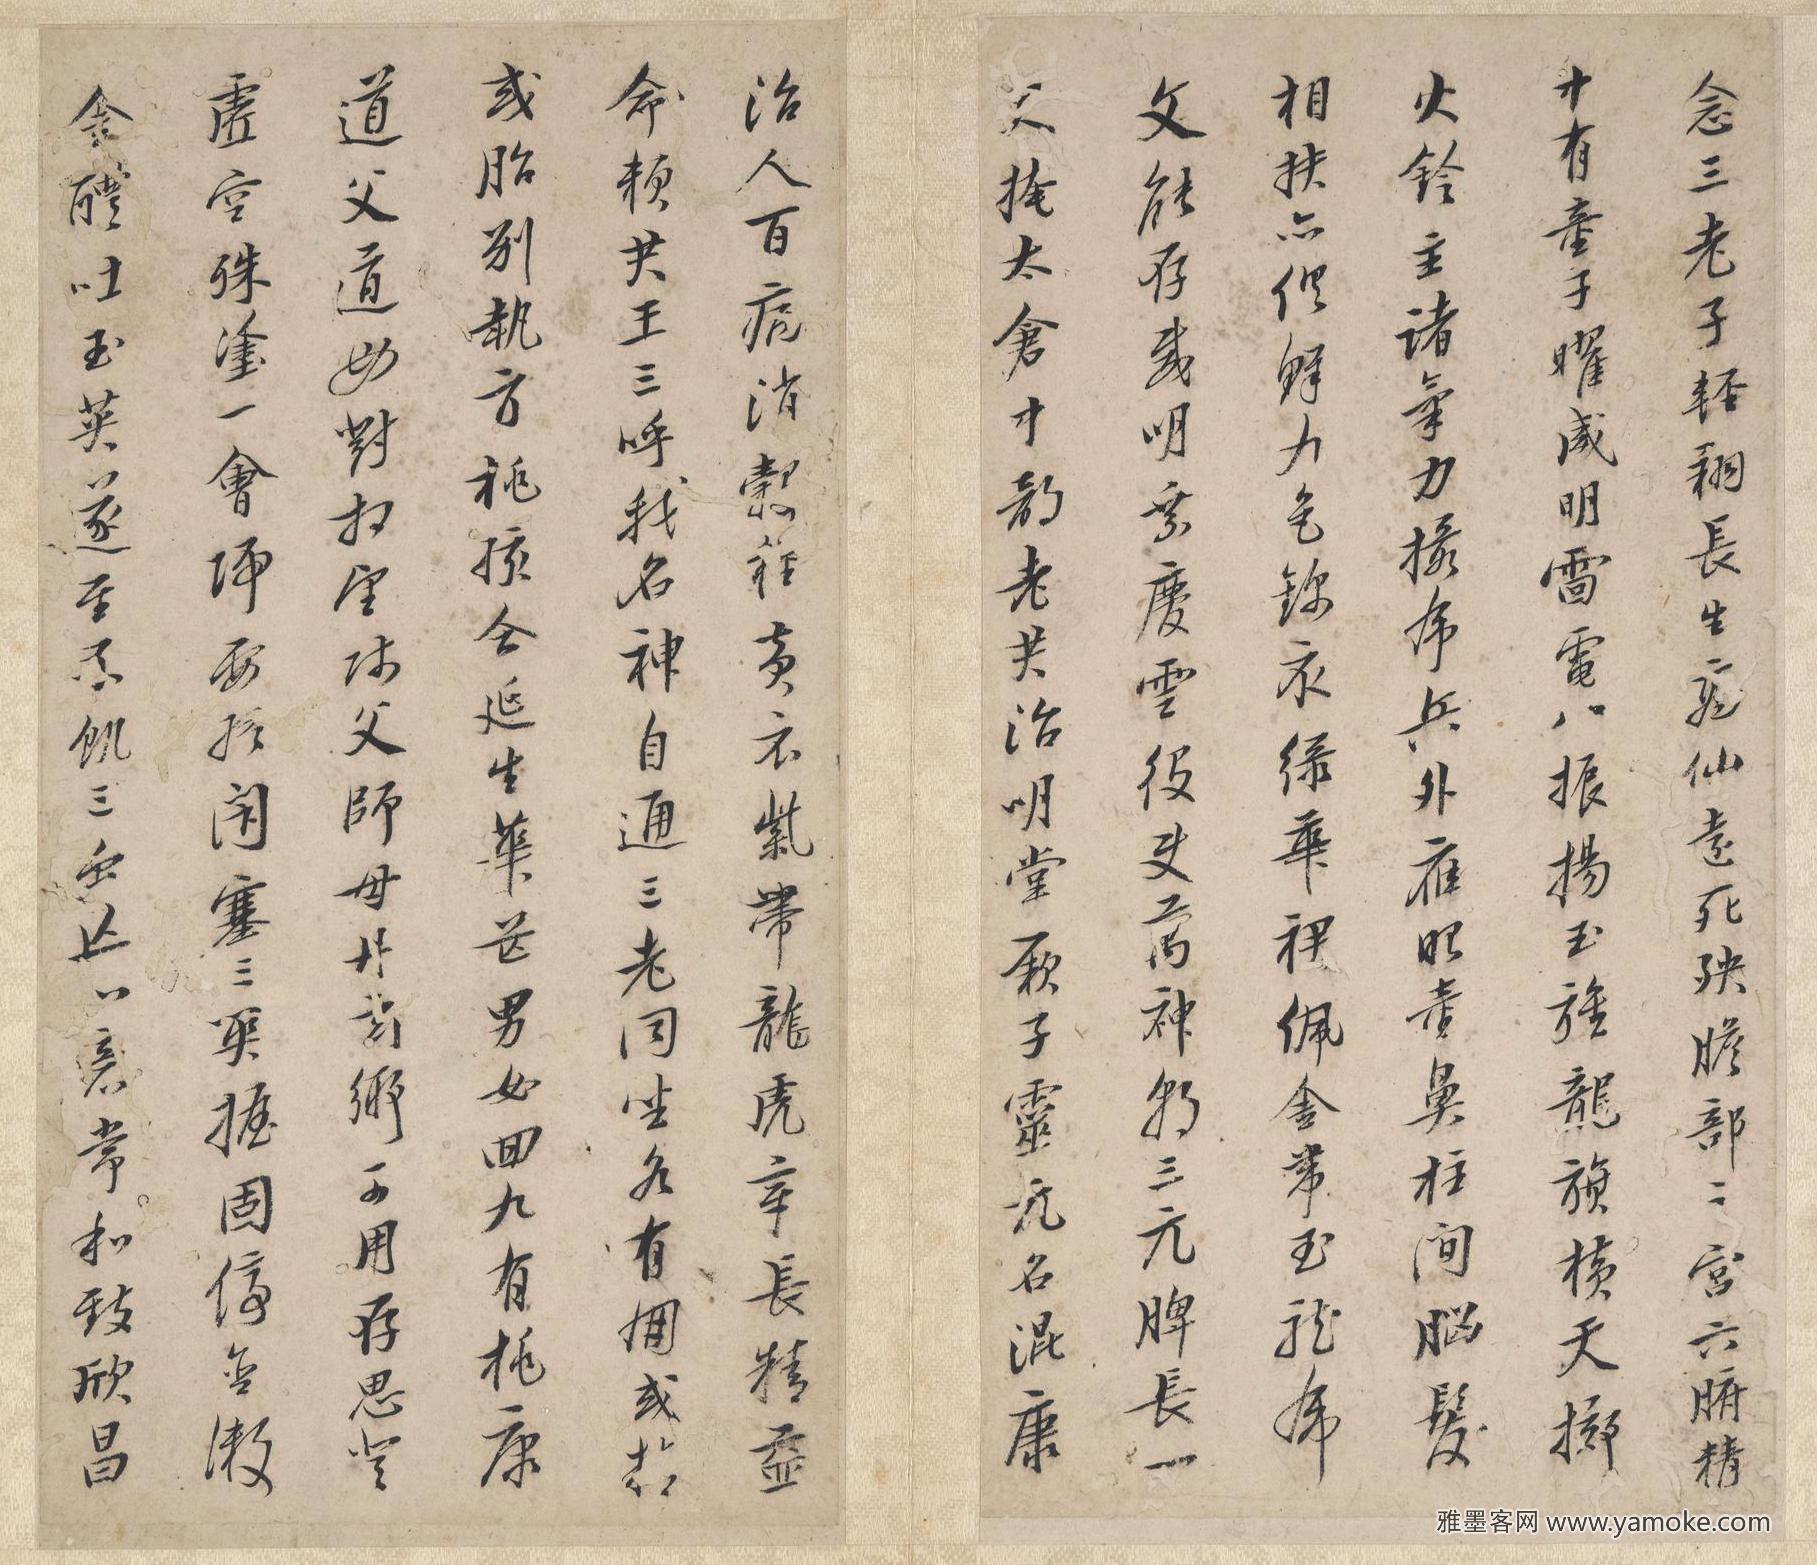 念三老子輕翔長生高仙遠死殃膽部之宮六腑精
中有童子曜威明雷電八振揚玉旌龍旗橫天擲
火鈴主諸氣力攝虎兵外應眼童鼻柱間腦髮
相扶亦俱鮮九色錦衣綠華裙佩金帶玉龍虎
文能存威明乘慶雲役使萬神朝三元脾長一
尺掩太倉中部老君治明堂厥子靈元名混康
治人百病消穀糧黃衣紫帶龍虎章長精益
命賴君王三呼我名神自通三老同坐各有朋或精
或胎別執方桃孩合延生華芒男女回九有桃康
道父道母對相望師父師母丹玄鄉可用存思登
虛空殊塗一會歸要終閉塞三關握固停含漱
金醴吐玉英遂至不飢三虫亡心意常和致欣昌
雅墨客网 www.yamoke.com